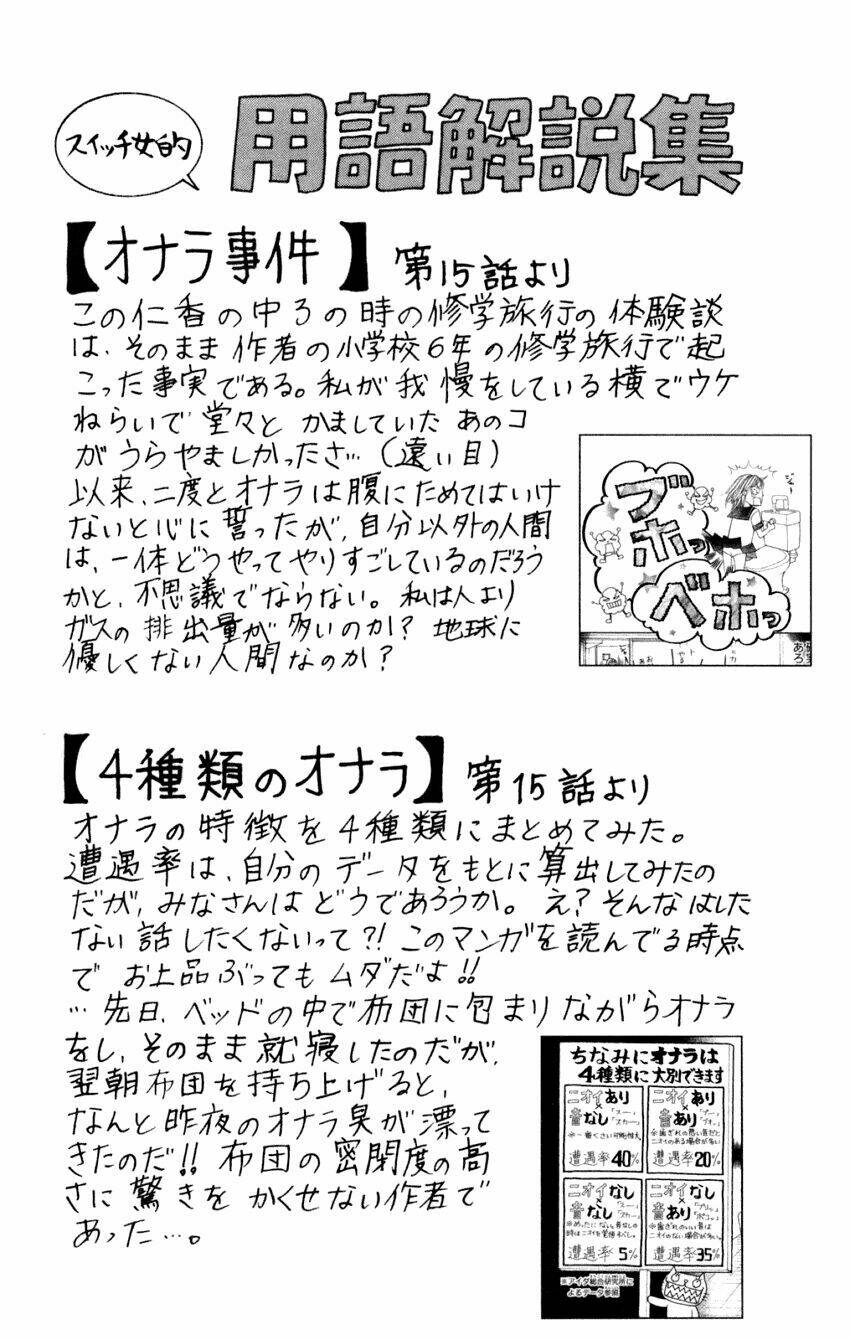 スイッチ女的
用語解説集
【オナラ事件】第15話より
この仁香の中3の時の修学旅行の体験談
は、そのまま作者の小学校6年の修学旅行で起
こった事実である。私が我慢をしている横でウケ
ねらいで堂々とかましていたあのコ
がうらやましかったさ…(遠い目)
以来、二度とオナラは腹にためてはいけ
ないと心に誓ったが、自分以外の人間
は、一体どうやってやりすごしているのだろう
かと、不思議でならない。私は人より
ガスの排出量が多いのか?地球に
優しくない人間なのか?
ブホッ
ベホッ
【4種類のオナラ】第15話より
オナラの特徴を4種類にまとめてみた。
遭遇率は、自分のデータをもとに算出してみたの
だが、みなさんはどうであろうか。え?そんなはした
ない話したくないって?!このマンガを読んでる時点
でお上品ぶってもムダだよ!!
…先日、ベッドの中で布団に包まりながらオナラ
をし、そのまま就寝したのだが、
翌朝布団を持ち上げると、
なんと昨夜のオナラ臭が漂って
きたのだ!!布団の密閉度の高
さに驚きをかくせない作者で
あった…。
ちなみにオナラは
4種類に大別できます
ニオイあり
×
音なし「スー」「スカー」
遭遇率40%
ニオイあり
×
音あり「ブー」「ブオ」
遭遇率20%
ニオイなし
×
音なし「スー」「スカー」
遭遇率5%
ニオイなし
×
音あり
遭遇率35%
※アイダ総合研究所に
よるデータ参照